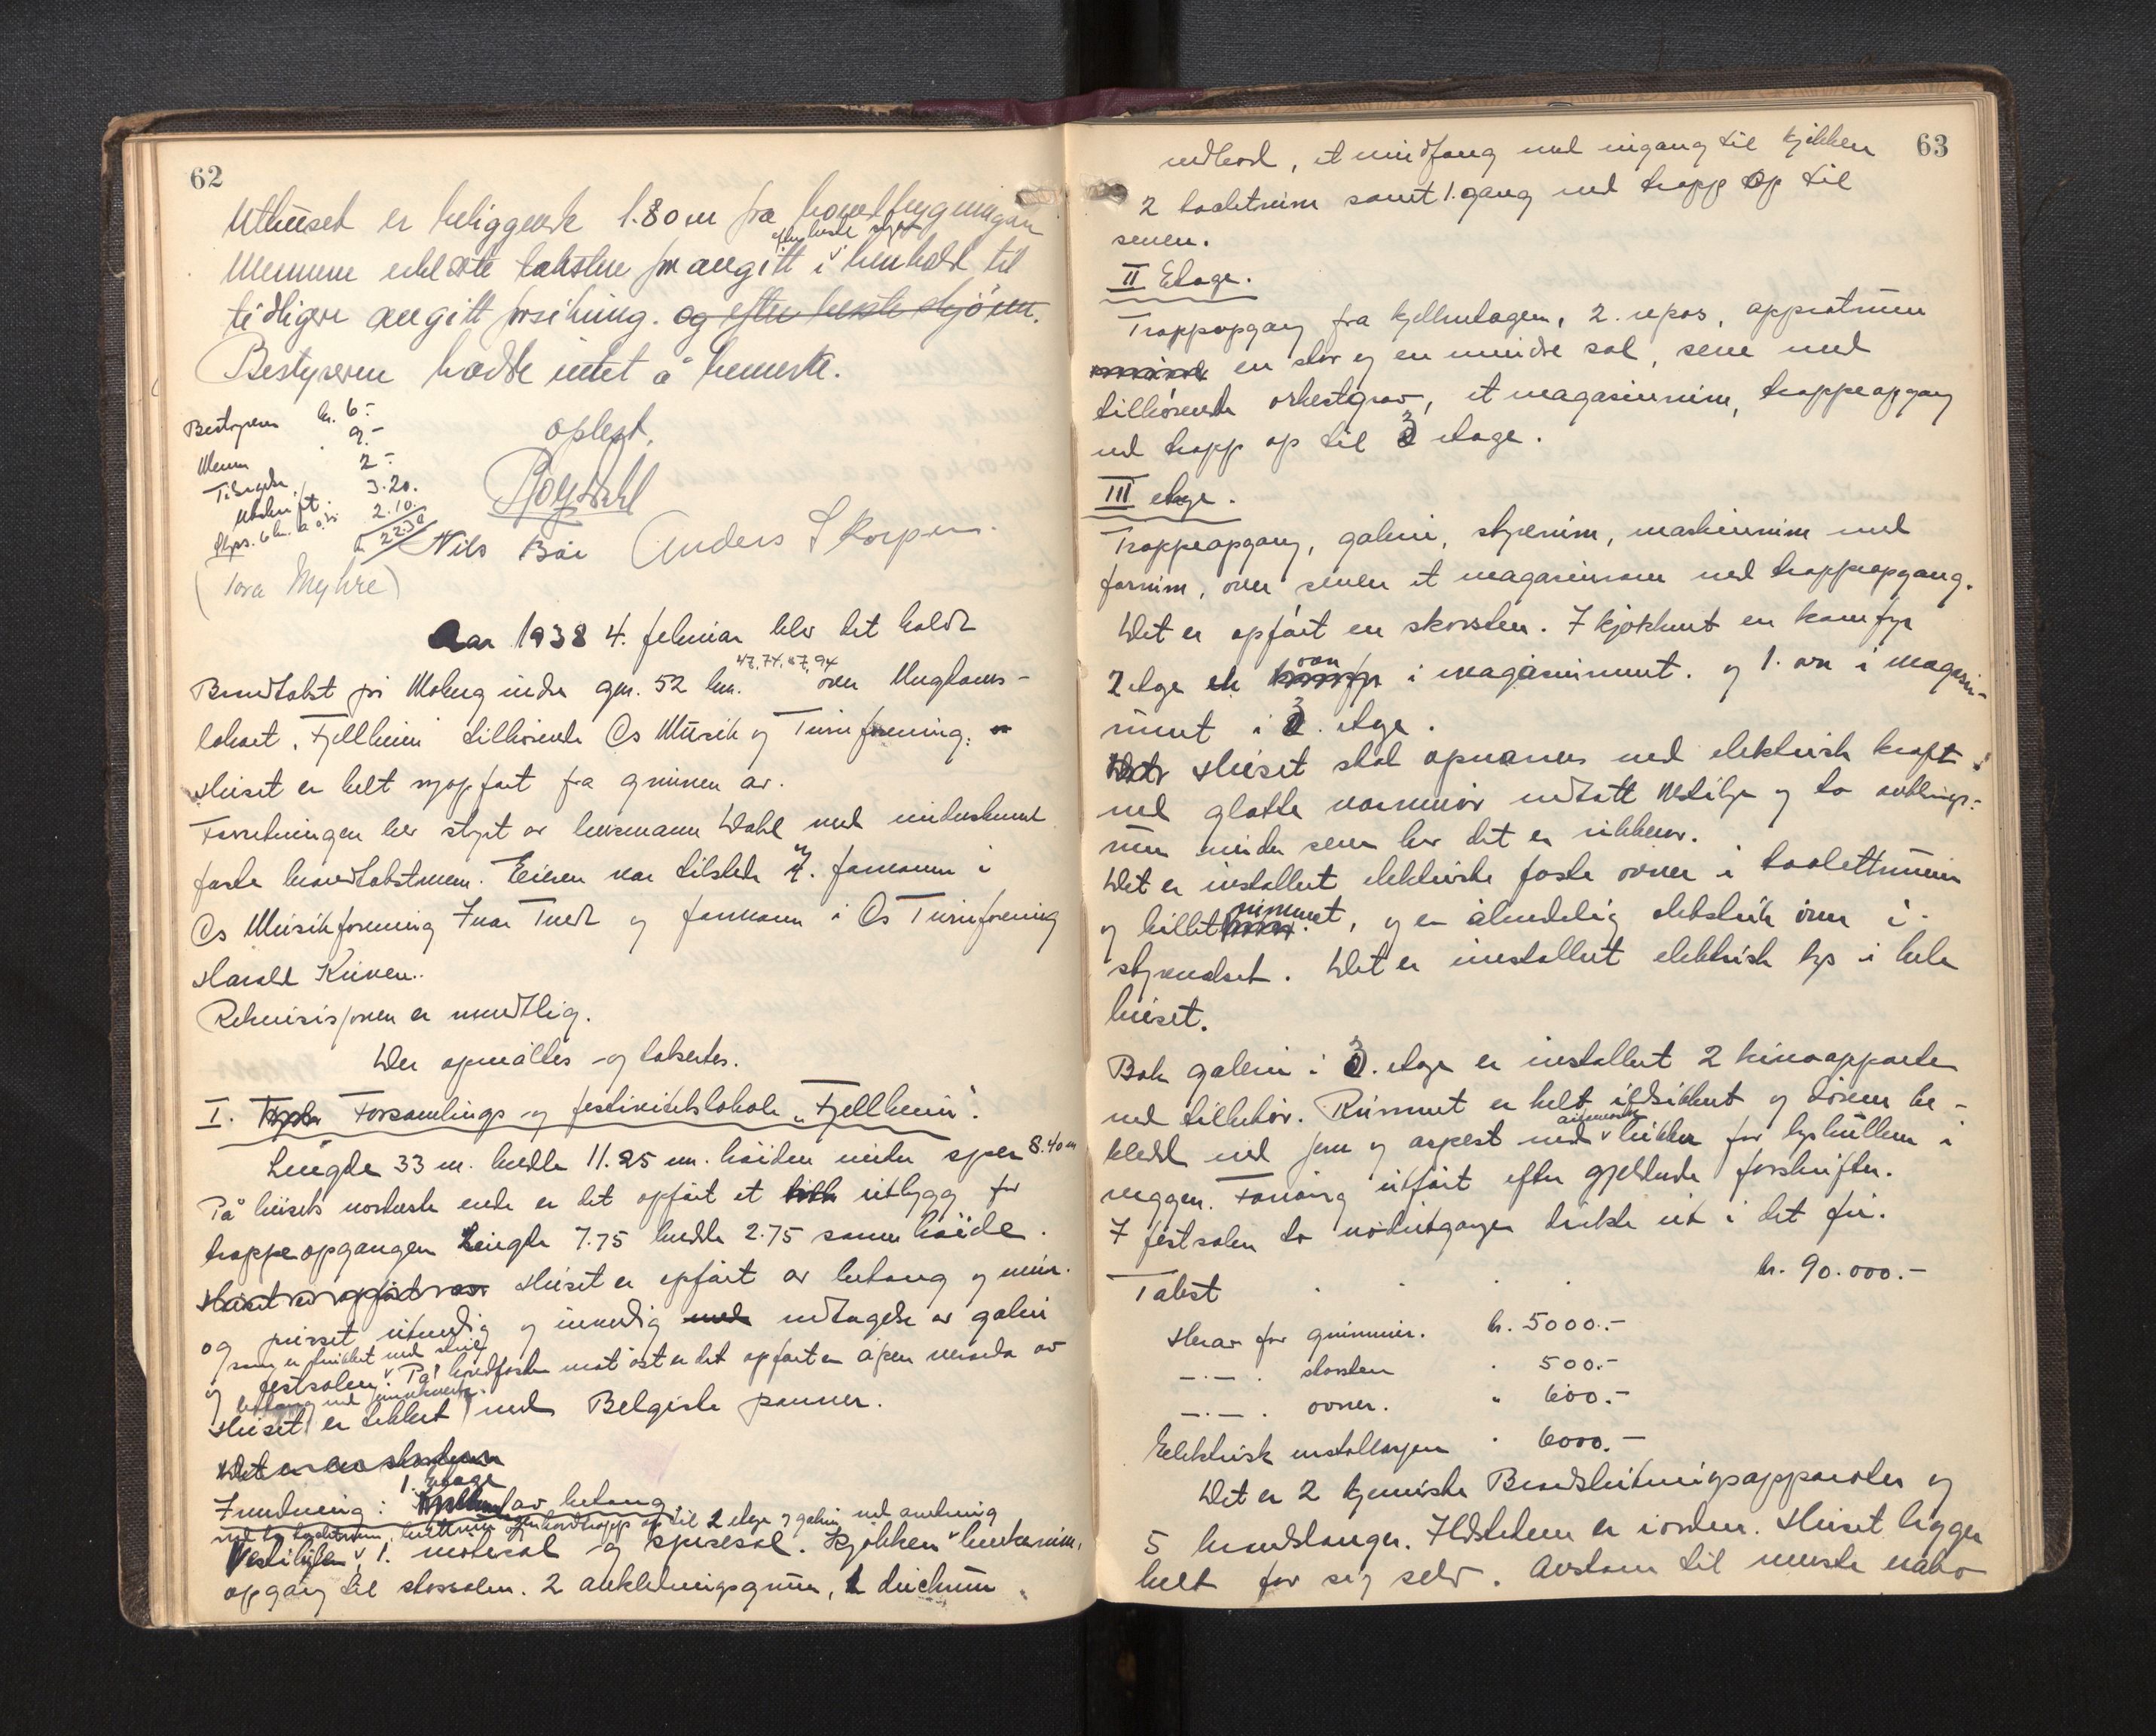 62
Uthuset er beliggende 1.80 m fra hovedbygningen
efter beste skjøn
Mennene erklærte taksten for avgitt i henhold til
tidligere avgitt forsikring. og efter beste skjønn.
Bestyreren hadde intet å bemerke.
Bestyreren kr. 6.-
Menn 9.-
Tilsigelse 2.-
Utskrift 3.20.
Skyss. 6 km. 2.10.
kr 22.30
oplest.
Nils Bøe Anders Skorpen.
(Tora Myhre)
Aar 1938 4. februar blev det holdt
47, 74, 87, 94
Brandtakst på Moberg indre gnr. 52 bnr. over Ungdoms-
lokaet, Fjellheim tilhørende Os Musik og Turnforening.
Huset er helt nyopført fra grunnen av.
Forretningen ble styrt av lensmann Dahl med underskrevne
faste brandtakstmenn. Eieren var tilstede v. formann i
Os Musikforening Ivar Tveit og formann i Os Turnforening
Harald Kuven..
Rekvisisjonen er mundtlig.
Der opmåltes og takseredes.
I. Forsamlings og festivitetslokale „Fjellheim".
Lengde 33 m. bredde 11.25 m. høiden under sper 8.40 m
På husets nordveste ende er det opført et utbygg for
trappeopgangen Lengde 7.75 bredde 2.75 samme høide.
Huset er opført av Huset er opført av betong og mur.
og pusset utvendig og innvendig med undtagelse av galeri
som er trukket med strie
og festsalen. På bredsiden mot øst er det opført en åpen veranda av
betong med
Huset er tekket med Belgiske panner.
Det er en skorsten
1. etage
Inndeling: Kjelleren av betong
med to toaletrum, hovedtrapp op til 2 etage og galeri med
Vestibylen, 1. møtesal og spisesal. Kjøkken
opgang til storsalen. 2 avkledningsrum, 1 duschrum
63
vedbod, et vindfang med ingang til kjøkken
2 toaletrum samt 1. gang med trapp op til
scenen.
II Etage.
Trappopgang fra kjelleretagen, 2. repos,
en stor og en mindre sal, scene med
tilhørende orkestgrav, et magasinrum, trappeopgang
med trapp op til 3 etage.
III etage.
Trappeopgang, galeri, styrerum, maskinrum med
forrum, over scenen et magasinrom med trappeopgang.
Det er opført en skorsten. I kjøkkenet en komfyr
ovn
2 etage en i magasinrumet. og 1. ovn i magasin-
rumet i 3. etage.
Huset skal opvarmes med elektrisk kraft
med glatte varmerør undtatt vestibyle og to avklednings-
rum under scenen her det er ribberør.
Det er installert elektriske faste ovner i toalettrummene
og billetrummet, og en almindelig elektrisk ovn i
styreværelset. Det er installert elektrisk lys i hele
huset.
Bak galeri i 3. etage er installert 2 kinoapparater
med tilbehør. Rummet er helt ildsikkert og døren be-
kledd med jern og aspest med automatiske lukker for lyshullene i
veggen. Foranstaltning utført efter gjeldende forskrifter.
I festsalen to nødutganger direkte ut i det fri.
Takst . . . kr. 90.000.-
Herav for grunnmur. kr. 5000.-
—.—. skorsten . 500.-
—.—. ovner. " 600.-
Elektrisk installasjon . 6000.-
Det er 2 kjemiske Brandslukningsapparater og
5 brandslanger. Ildstedene er i orden. Huset ligger
helt for sig selv. Avstand til nærmeste nabo